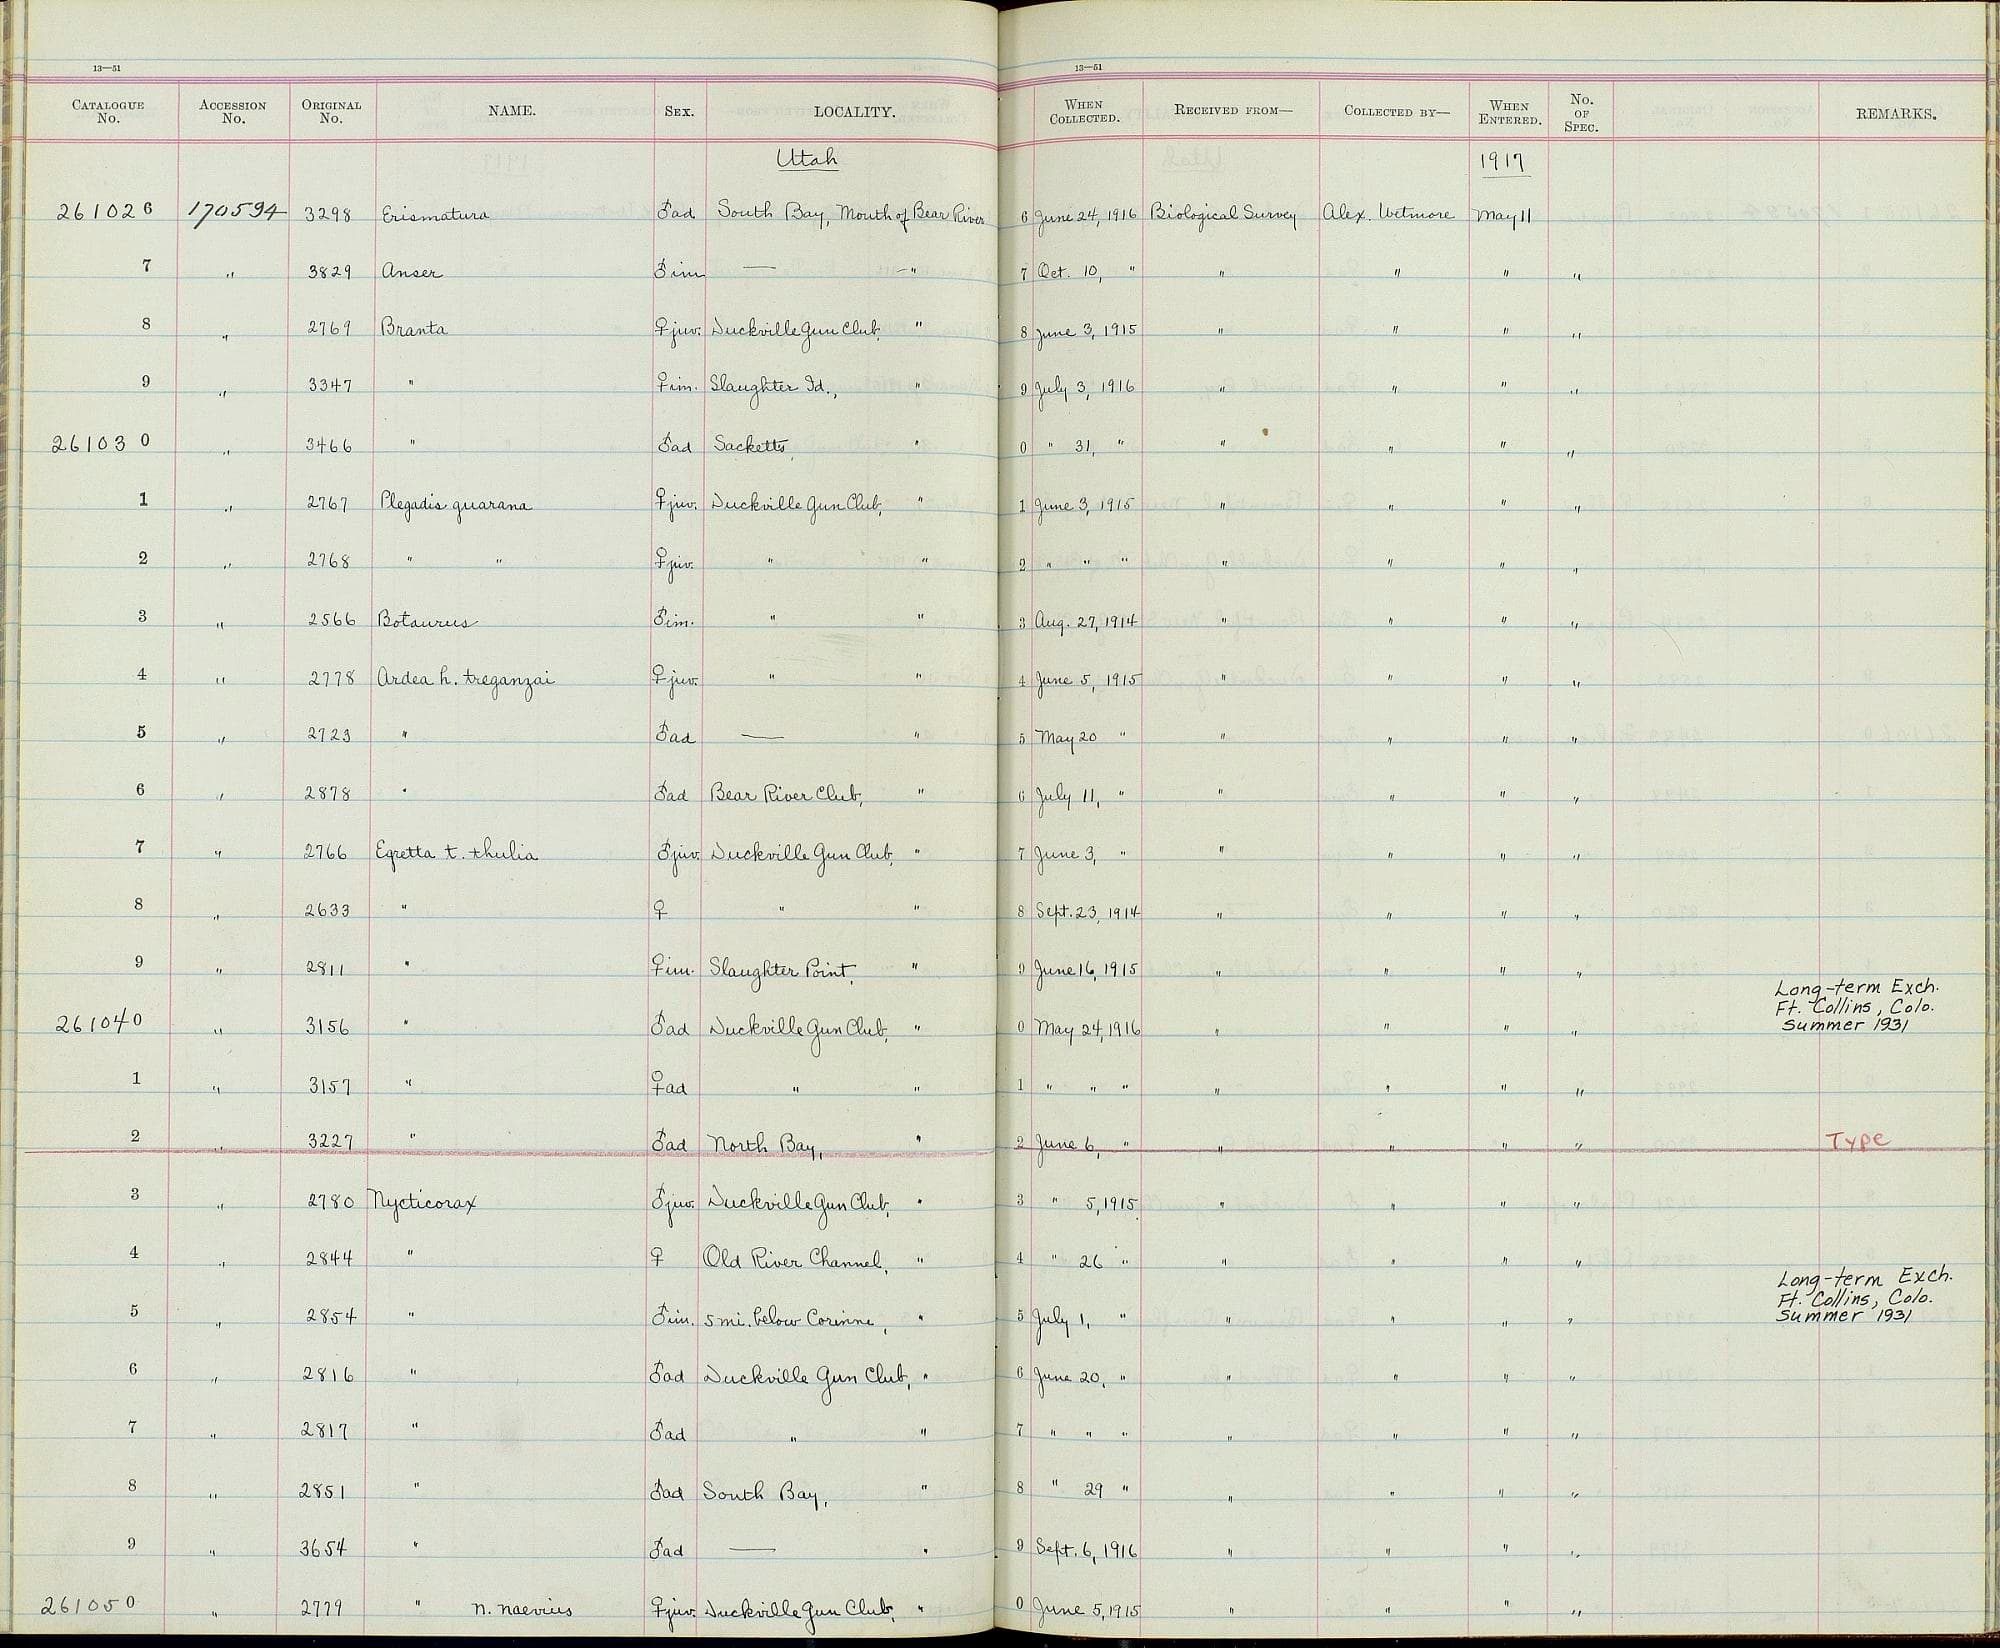 13—51 13—51
CATALOGUE No. ACCESSION No. ORIGINAL No. NAME. SEX. LOCALITY. WHEN COLLECTED. RECEIVED FROM— COLLECTED BY— WHEN ENTERED. No. OF SPEC. REMARKS.
Utah 1917
261026 170594 3298 Erismatura ♂ad South Bay, Mouth of Bear River 6 June 24, 1916 Biological Survey Alex. Wetmore May 11
7 " 3829 Anser ♂im — — " 7 Oct. 10, " " " " "
8 " 2769 Branta ♀juv. Duckville Gun Club, " 8 June 3, 1915 " " " "
9 " 3347 " ♀im. Slaughter Id., " 9 July 3, 1916 " " " "
261030 " 3466 " ♂ad Sacketts, " 0 " 31, " " " " "
1 " 2767 Plegadis guarana ♀juv. Duckville Gun Club, " 1 June 3, 1915 " " " "
2 " 2768 " " ♀juv. " " 2 " " " " " " "
3 " 2566 Botaurus ♂im. " " 3 Aug. 27, 1914 " " " "
4 " 2778 Ardea h. treganzai ♀juv. " " 4 June 5, 1915 " " " "
5 " 2723 " ♂ad — " 5 May 20 " " " " "
6 " 2878 " ♂ad Bear River Club, " 6 July 11, " " " " "
7 " 2766 Egretta t. thulia ♂juv. Duckville Gun Club, " 7 June 3, " " " " "
8 " 2633 " ♀ " " 8 Sept. 23, 1914 " " " "
9 " 2811 " ♀im. Slaughter Point, " 9 June 16, 1915 " " " "
Long-term Exch.
Ft. Collins, Colo.
261040 " 3156 " ♂ad Duckville Gun Club, " 0 May 24, 1916 " " " " Summer 1931
1 " 3157 " ♀ad " " 1 " " " " " " "
2 " 3227 " ♂ad North Bay, " 2 June 6, " " " " " Type
3 " 2780 Nycticorax ♂juv. Duckville Gun Club, " 3 " 5, 1915 " " " "
4 " 2844 " ♀ Old River Channel, " 4 " 26 " " " " "
Long-term Exch.
Ft. Collins, Colo.
5 " 2854 " ♂im. 5 mi. below Corinne, " 5 July 1, " " " " " Summer 1931
6 " 2816 " ♂ad Duckville Gun Club, " 6 June 20, " " " " "
7 " 2817 " ♂ad " " 7 " " " " " " "
8 " 2851 " ♂ad South Bay, " 8 " 29 " " " " "
9 " 3654 " ♂ad — " 9 Sept. 6, 1916 " " " "
261050 " 2779 " n. naevius ♀juv. Duckville Gun Club, " 0 June 5, 1915 " " " "